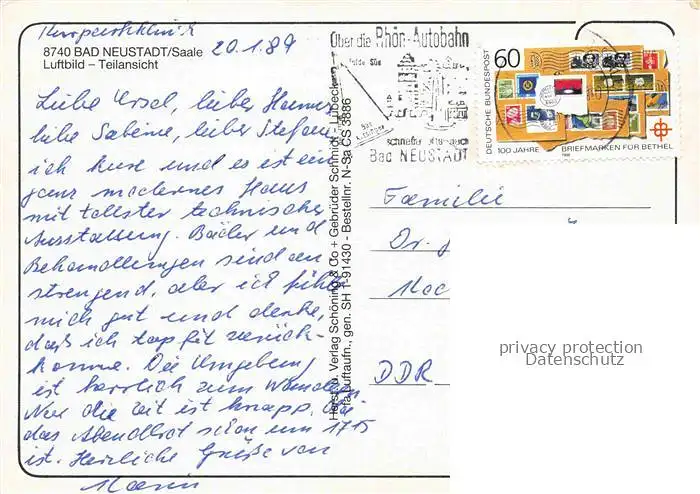 Kurparkklinik
20.1.89
8740 BAD NEUSTADT/Saale
Luftbild – Teilansicht
Liebe Ursel, lieber Hannes
liebe Sabine, lieber Stefan
ich kure und es ist ein
ganz modernes Haus
mit tollster technischer
Ausstattung. Bäder und
Behandlungen sind an
strengend, aber ich fühle
mich gut und denke,
daß ich top fit zurück-
komme. Die Umgebung
ist herrlich zum Wandern
Nur die Zeit ist knapp, da
das Abendbrot schon um 17 15
ist. Herzliche Grüße von
Herst. u. Verlag Schöning & Co + Gebrüder Schmidt, Lübeck
Luftaufn., gen. SH 1-91430 - Bestellnr. N-Sa CS 3886
Über die Rhön-Autobahn
Bad NEUSTADT
60
DEUTSCHE BUNDESPOST
100 JAHRE BRIEFMARKEN FÜR BETHEL
1988
Familie
Dr.
DDR
privacy protection
Datenschutz